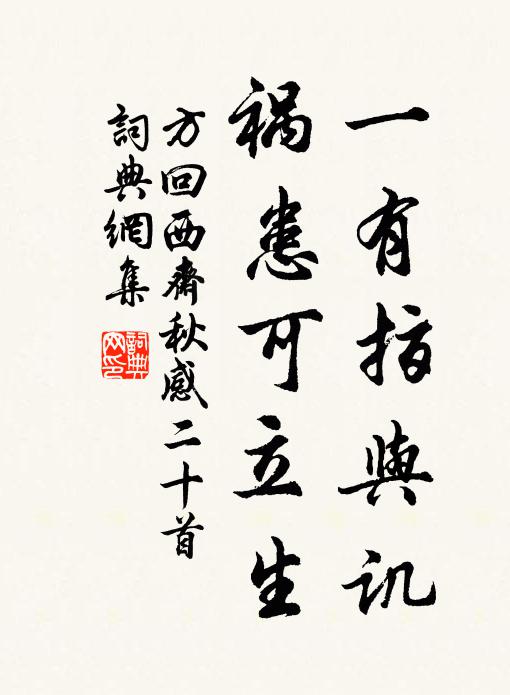 一有指與讥
祸患可立生
方回西齋秋感二十首
詞典網集
詞典網印